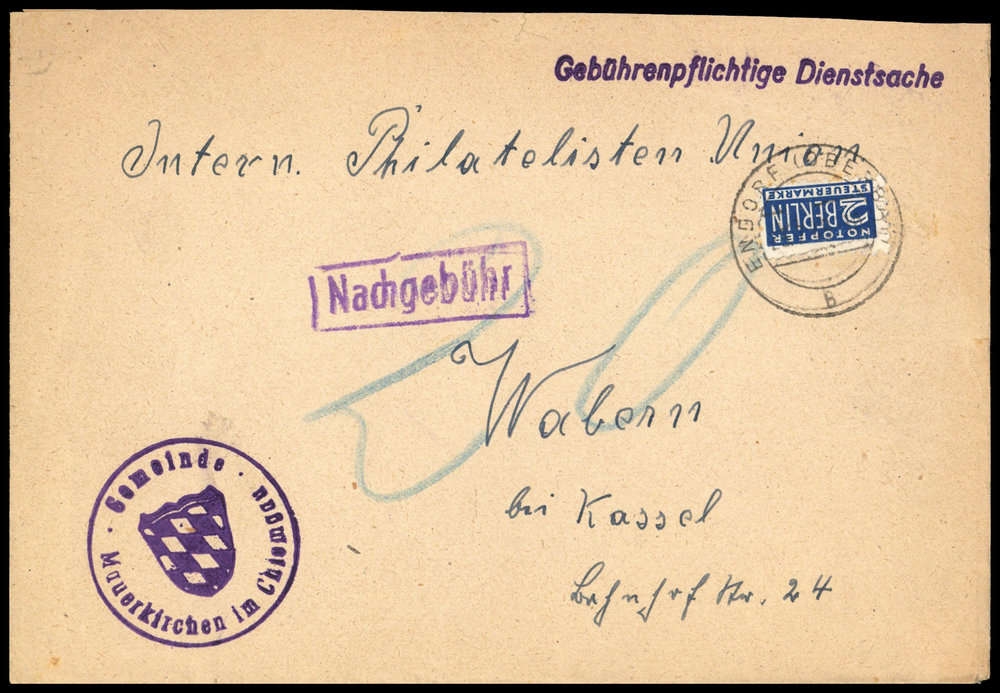 Gebührenpflichtige Dienstsache
Intern. Philatelisten Union
ENDORF (OBERBAY)
B
NOTOPFER
2 BERLIN
STEUERMARKE
Nachgebühr
20
Wabern
bei Kassel
Bahnhof Str. 24
· Gemeinde ·
Mauerkirchen im Chiemgau